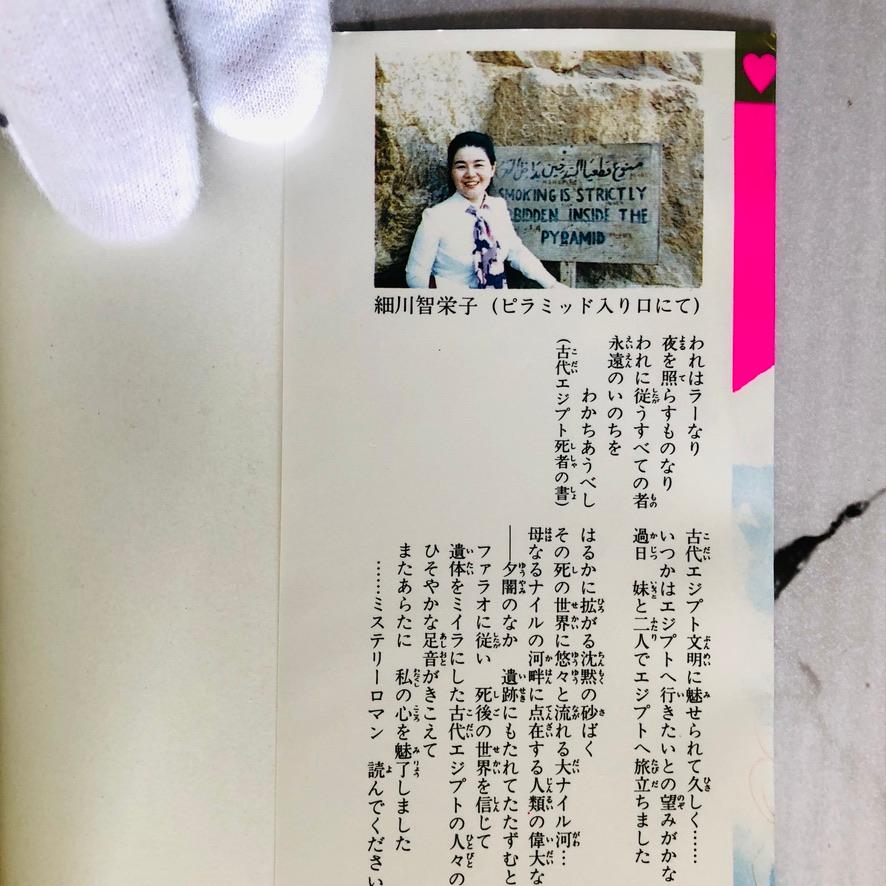 ممنوع قطعيا التدخين داخل الهرم
SMOKING IS STRICTLY
BIDDEN INSIDE THE
PYRAMID
細川智栄子 (ピラミッド入り口にて)
われはラーなり
夜を照らすものなり
われに従うすべての者
永遠のいのちを
わかちあうべし
(古代エジプト死者の書)
古代エジプト文明に魅せられて久しく……
いつかはエジプトへ行きたいとの望みがかな
過日 妹と二人でエジプトへ旅立ちました
はるかに拡がる沈黙の砂ばく
その死の世界に悠々と流れる大ナイル河…
母なるナイルの河畔に点在する人類の偉大な
――夕闇のなか 遺跡にもたれてたたずむと
ファラオに従い 死後の世界を信じて
遺体をミイラにした古代エジプトの人々の
ひそやかな足音がきこえて
またあらたに 私の心を魅了しました
……ミステリーロマン 読んでください